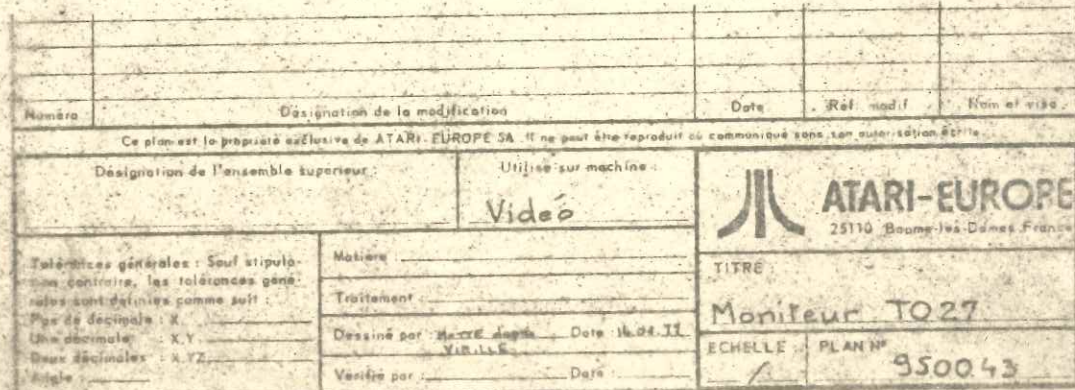 Numéro Désignation de la modification Date Réf. modif. Nom et visa.
Ce plan est la propriété exclusive de ATARI-EUROPE SA. Il ne peut être reproduit ou communiqué sans son autorisation écrite.
Désignation de l'ensemble superieur :
Utilisé sur machine :
Videó
ATARI-EUROPE
25110 Baume-les-Dames France
Tolérances générales : Sauf stipula-
tion contraire, les tolérances géné-
rales sont définies comme suit :
Pas de décimale : X
Une décimale : X.Y
Deux décimales : X.YZ
Angle
Matière :
Traitement :
Dessiné par : Date :
VIRILLE
Vérifié par : Date :
TITRE :
Moniteur TO27
ECHELLE : PLAN N°
/ 9500.43